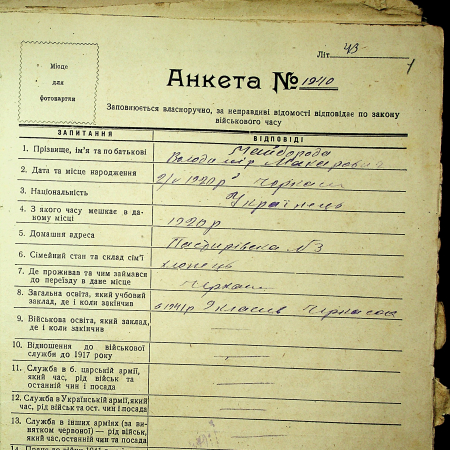 Літ. 43
1
Місце
для
фотокартки
Анкета № 1940
Заповнюється власноручно, за неправдиві відомості відповідає по закону
військового часу
ЗАПИТАННЯ ВІДПОВІДІ
1. Прізвище, ім'я та по батькові Майборода
Володимир Макарович
2. Дата та місце народження 1920 р Черкаси
3. Національність Українець
4. З якого часу мешкає в да-
ному місці 1920 р
5. Домашня адреса №3
6. Сімейний стан та склад сім'ї
7. Де проживав та чим займався
до переїзду в дане місце Черкаси
8. Загальна освіта, який учбовий
заклад, де і коли закінчив в 1941 р класів Черкаси
9. Військова освіта, який заклад,
де і коли закінчив
10. Відношення до військової
служби до 1917 року
11. Служба в б. царській армії,
який час, рід військ та
останній чин і посада
12. Служба в Українській армії, який
час, рід військ та ост. чин і посада
13. Служба в інших арміях (за ви-
нятком червоної) — рід військ,
який час, останній чин та посада